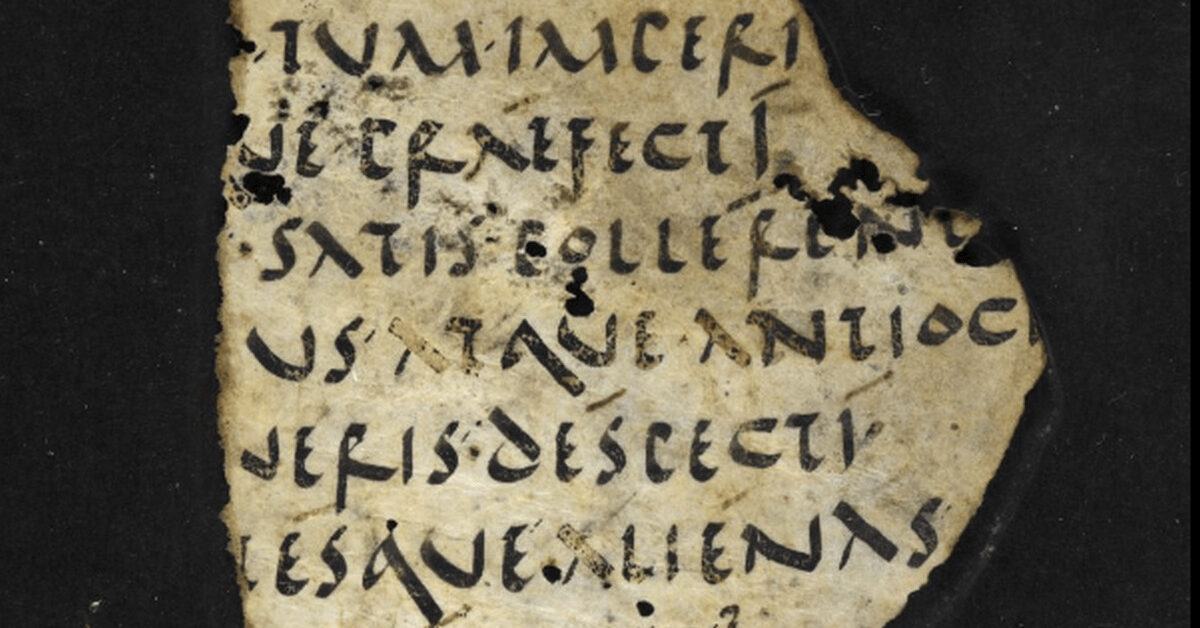 TUM·IMPERI
UE PRAEFECTI
SATIS·POLLERENT
US·ATQUE·ANTIOC
UERIS·DESPECTI·
ESQUE·ALIENAS